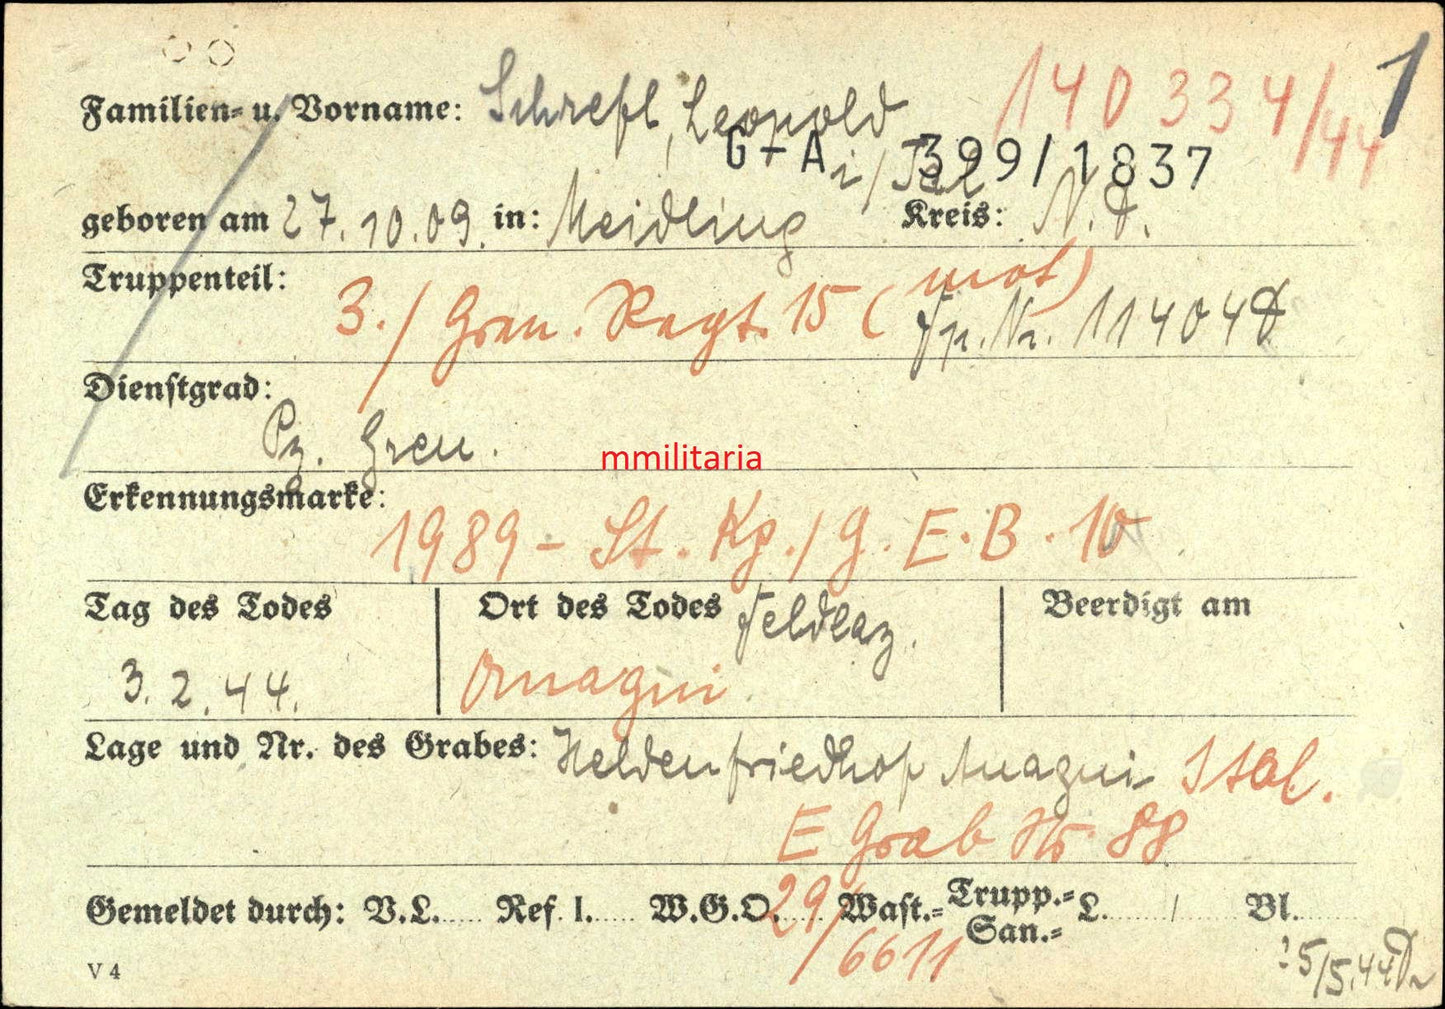 Familien- u. Vorname: Schrefl, Leopold 140 334/44 1
G-A 399/1837
i/Tal
geboren am 27.10.09. in: Meidling Kreis: N.D.
Truppenteil: 3./Gren. Regt. 15 (mot)
Fp. Nr. 11404 D
Dienstgrad:
Pz. Gren.
mmilitaria
Erkennungsmarke:
1989 - St. Kp./G. E. B. 10
Tag des Todes Ort des Todes Feldlaz. Beerdigt am
3.2.44. Anagni
Lage und Nr. des Grabes: Heldenfriedhof Anagni Ital.
E Grab Nr. 88
Gemeldet durch: V.L. Ref I. W.G.O. 29/6611 Wast.- Trupp.- San.- L. / Bl.
V 4 5/5.44